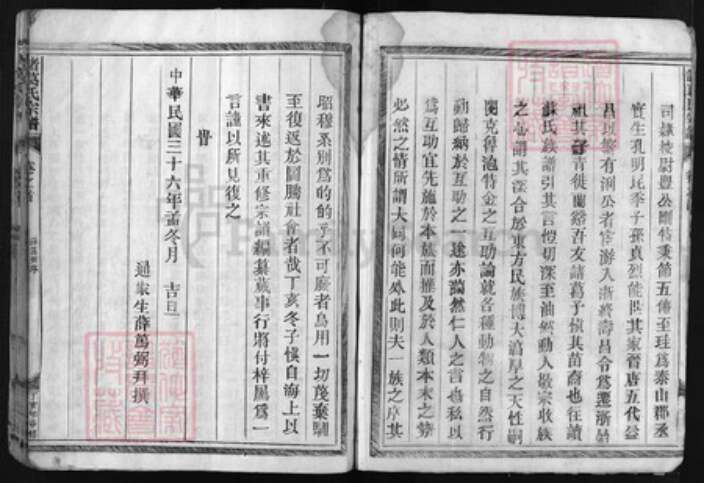 司隸校尉豐公剛特秉節五傳至珪為泰山郡丞
實生孔明昆季子孫貞烈能世其家晉唐五代益
昌以繁有浰公者宦游入浙終壽昌令為遷浙始
祖其子青徙蘭谿吾友諸葛予慎其苗裔也往讀
蘇氏族譜引其言愷切深至油然動人敬宗收族
之心謂其深合於東方民族博大篤厚之天性嗣
閱克魯泡特金之互助論就各種動物之自然行
動歸納於互助之一途亦藹然仁人之言也私以
為互助宜先施於本族而推及於人類本末之勢
必然之情所謂大同何能外此則夫一族之序其
昭穆系別為的的乎不可廢者烏用一切蔑棄馴
至復返於圖騰社會者哉丁亥冬子慎自海上以
書來述其重修宗譜編纂蕆事行將付梓屬為一
言謹以所見復之
旹
中華民國三十六年孟冬月 吉旦
通家生薛篤弼拜撰
諸葛氏宗譜